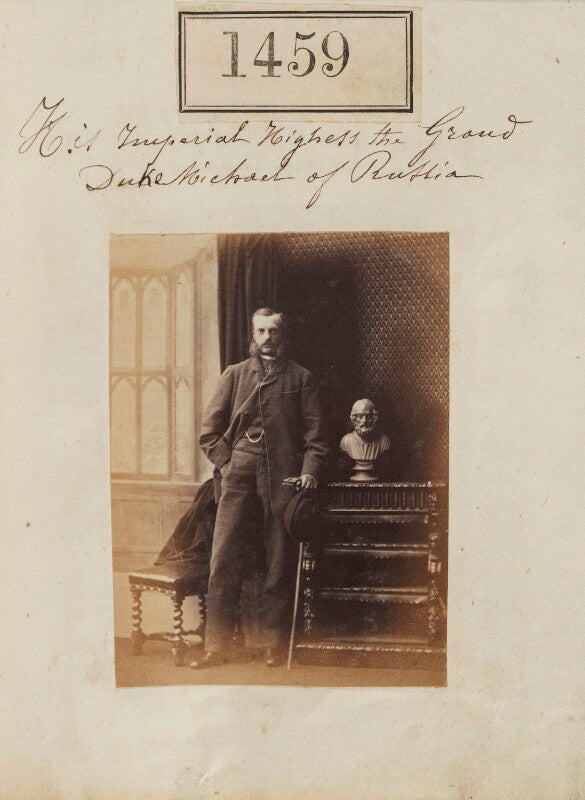 1459
His Imperial Highess the Grand
Duke Michael of Russia